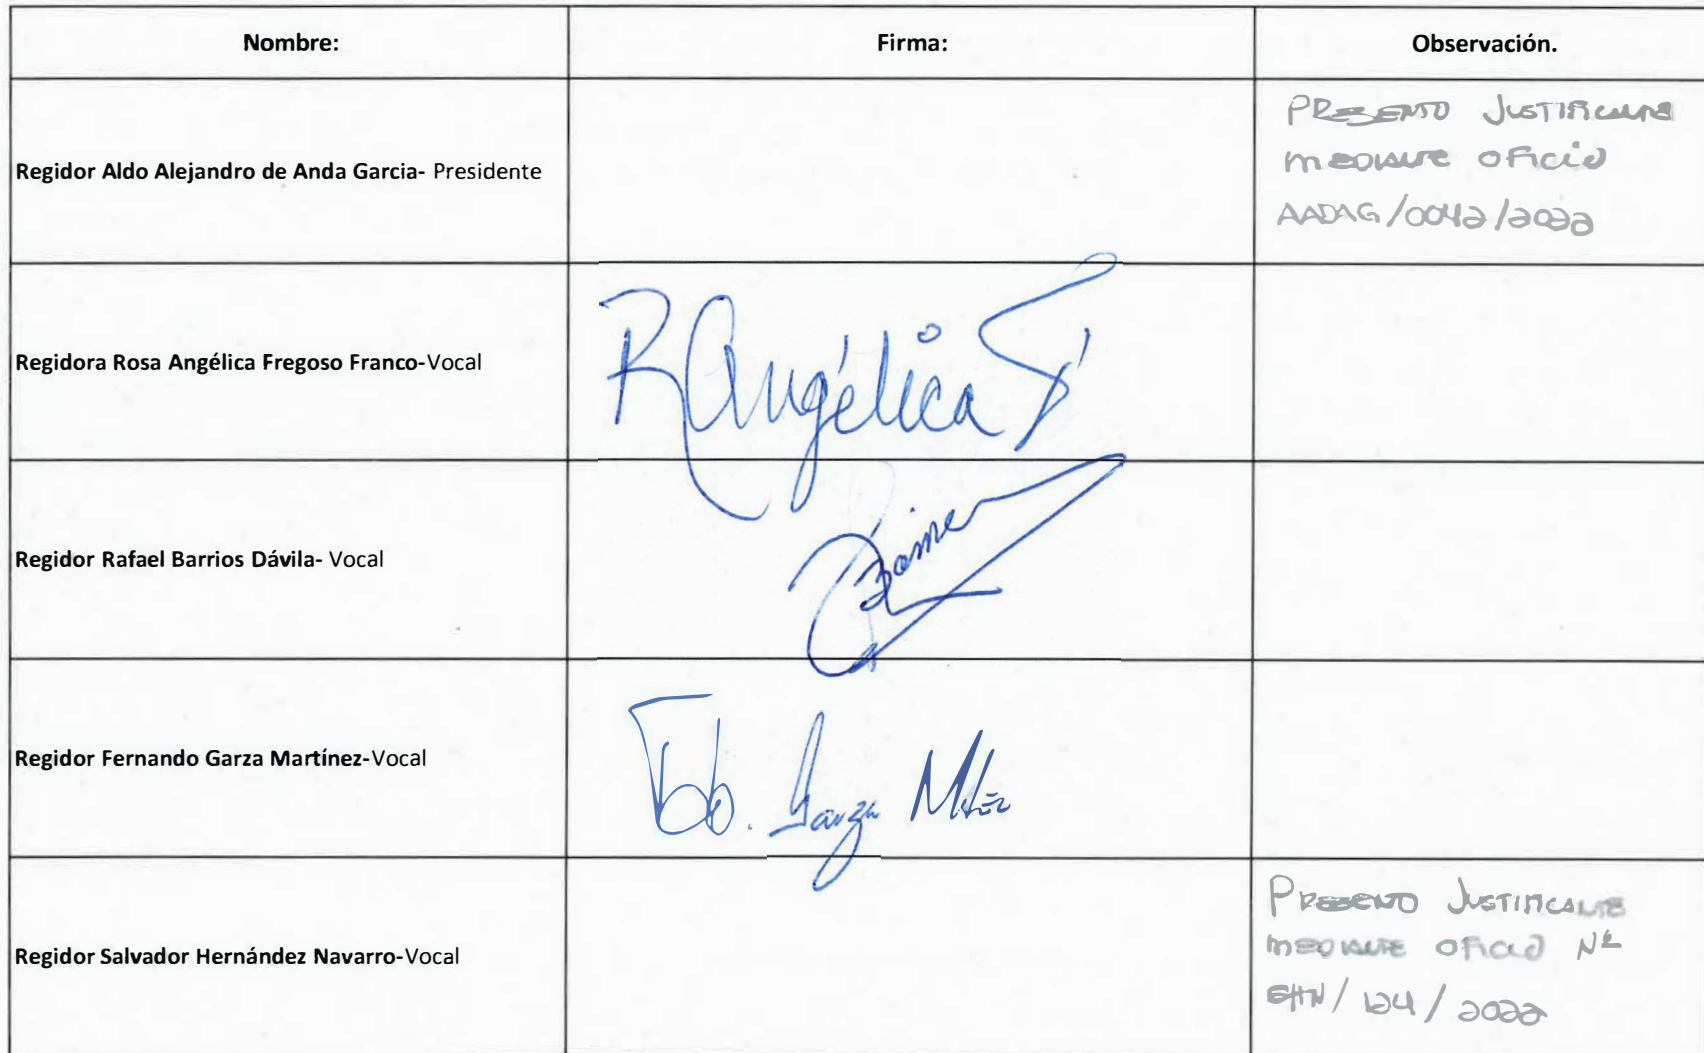 Nombre: Firma: Observación.
Regidor Aldo Alejandro de Anda Garcia- Presidente
PRESENTO JUSTIFICANTE
MEDIANTE OFICIO
AADAG/0042/2022
Regidora Rosa Angélica Fregoso Franco-Vocal
RAngélica F
Regidor Rafael Barrios Dávila- Vocal
Regidor Fernando Garza Martínez-Vocal
Garza
Regidor Salvador Hernández Navarro-Vocal
PRESENTO JUSTIFICANTE
MEDIANTE OFICIO Nº
/ 124 / 2022